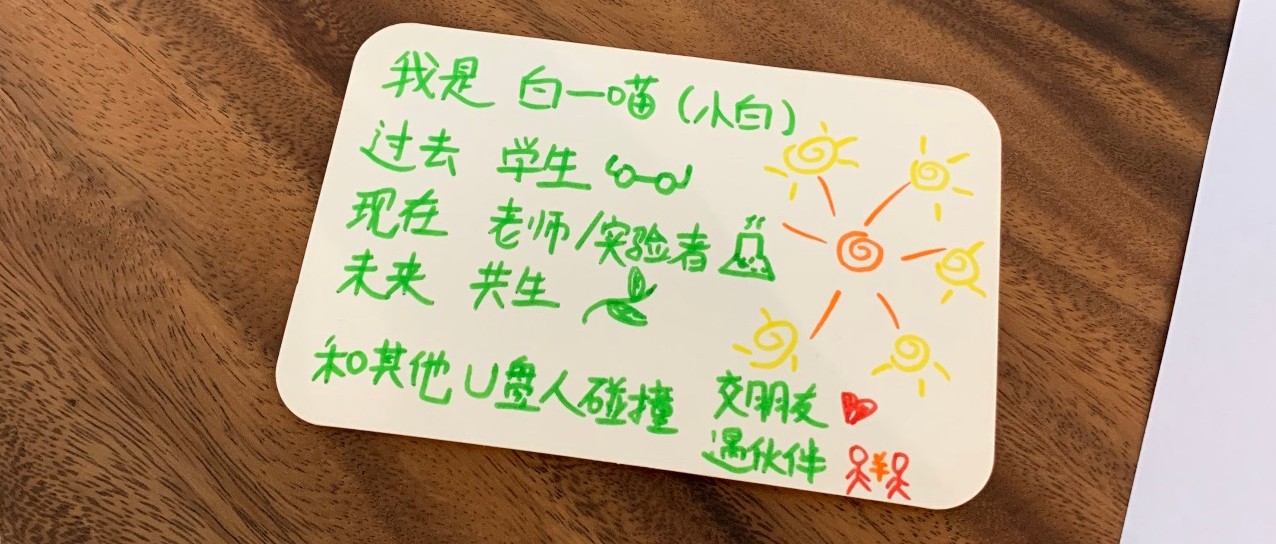 我是 白一喵(小白)
过去 学生
现在 老师/实验者
未来 共生
和其他U盘人碰撞 交朋友
遇伙伴